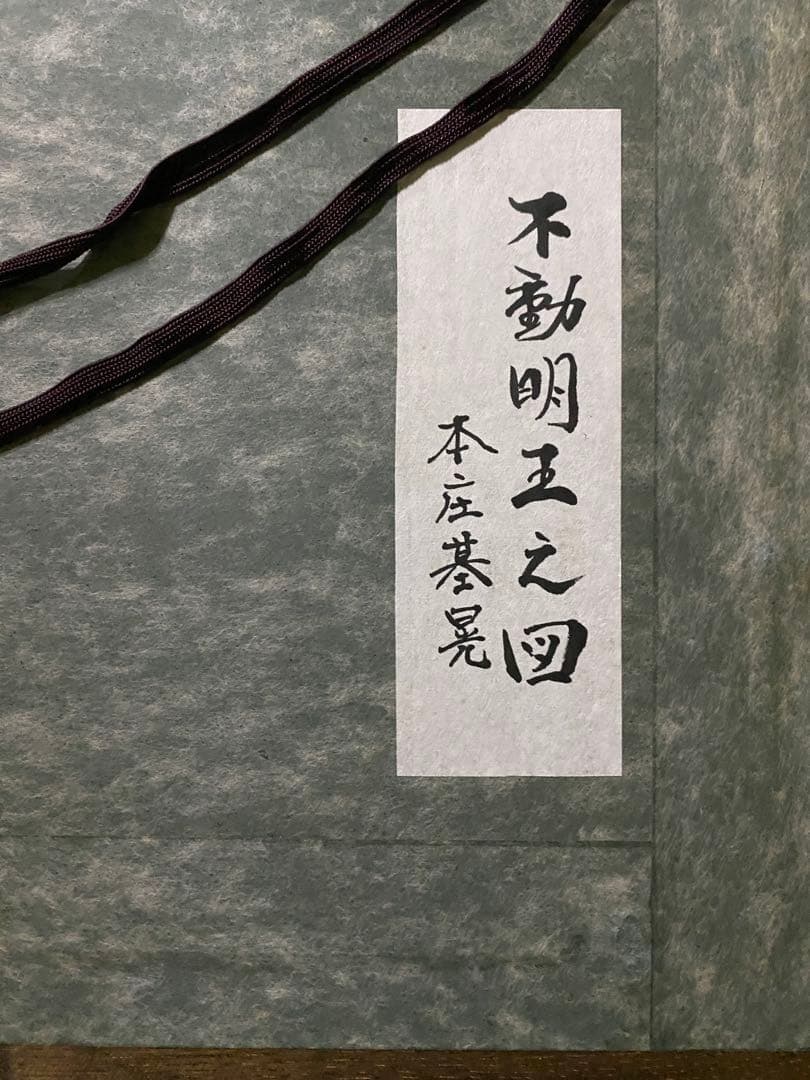 不動明王之図
本庄基晃